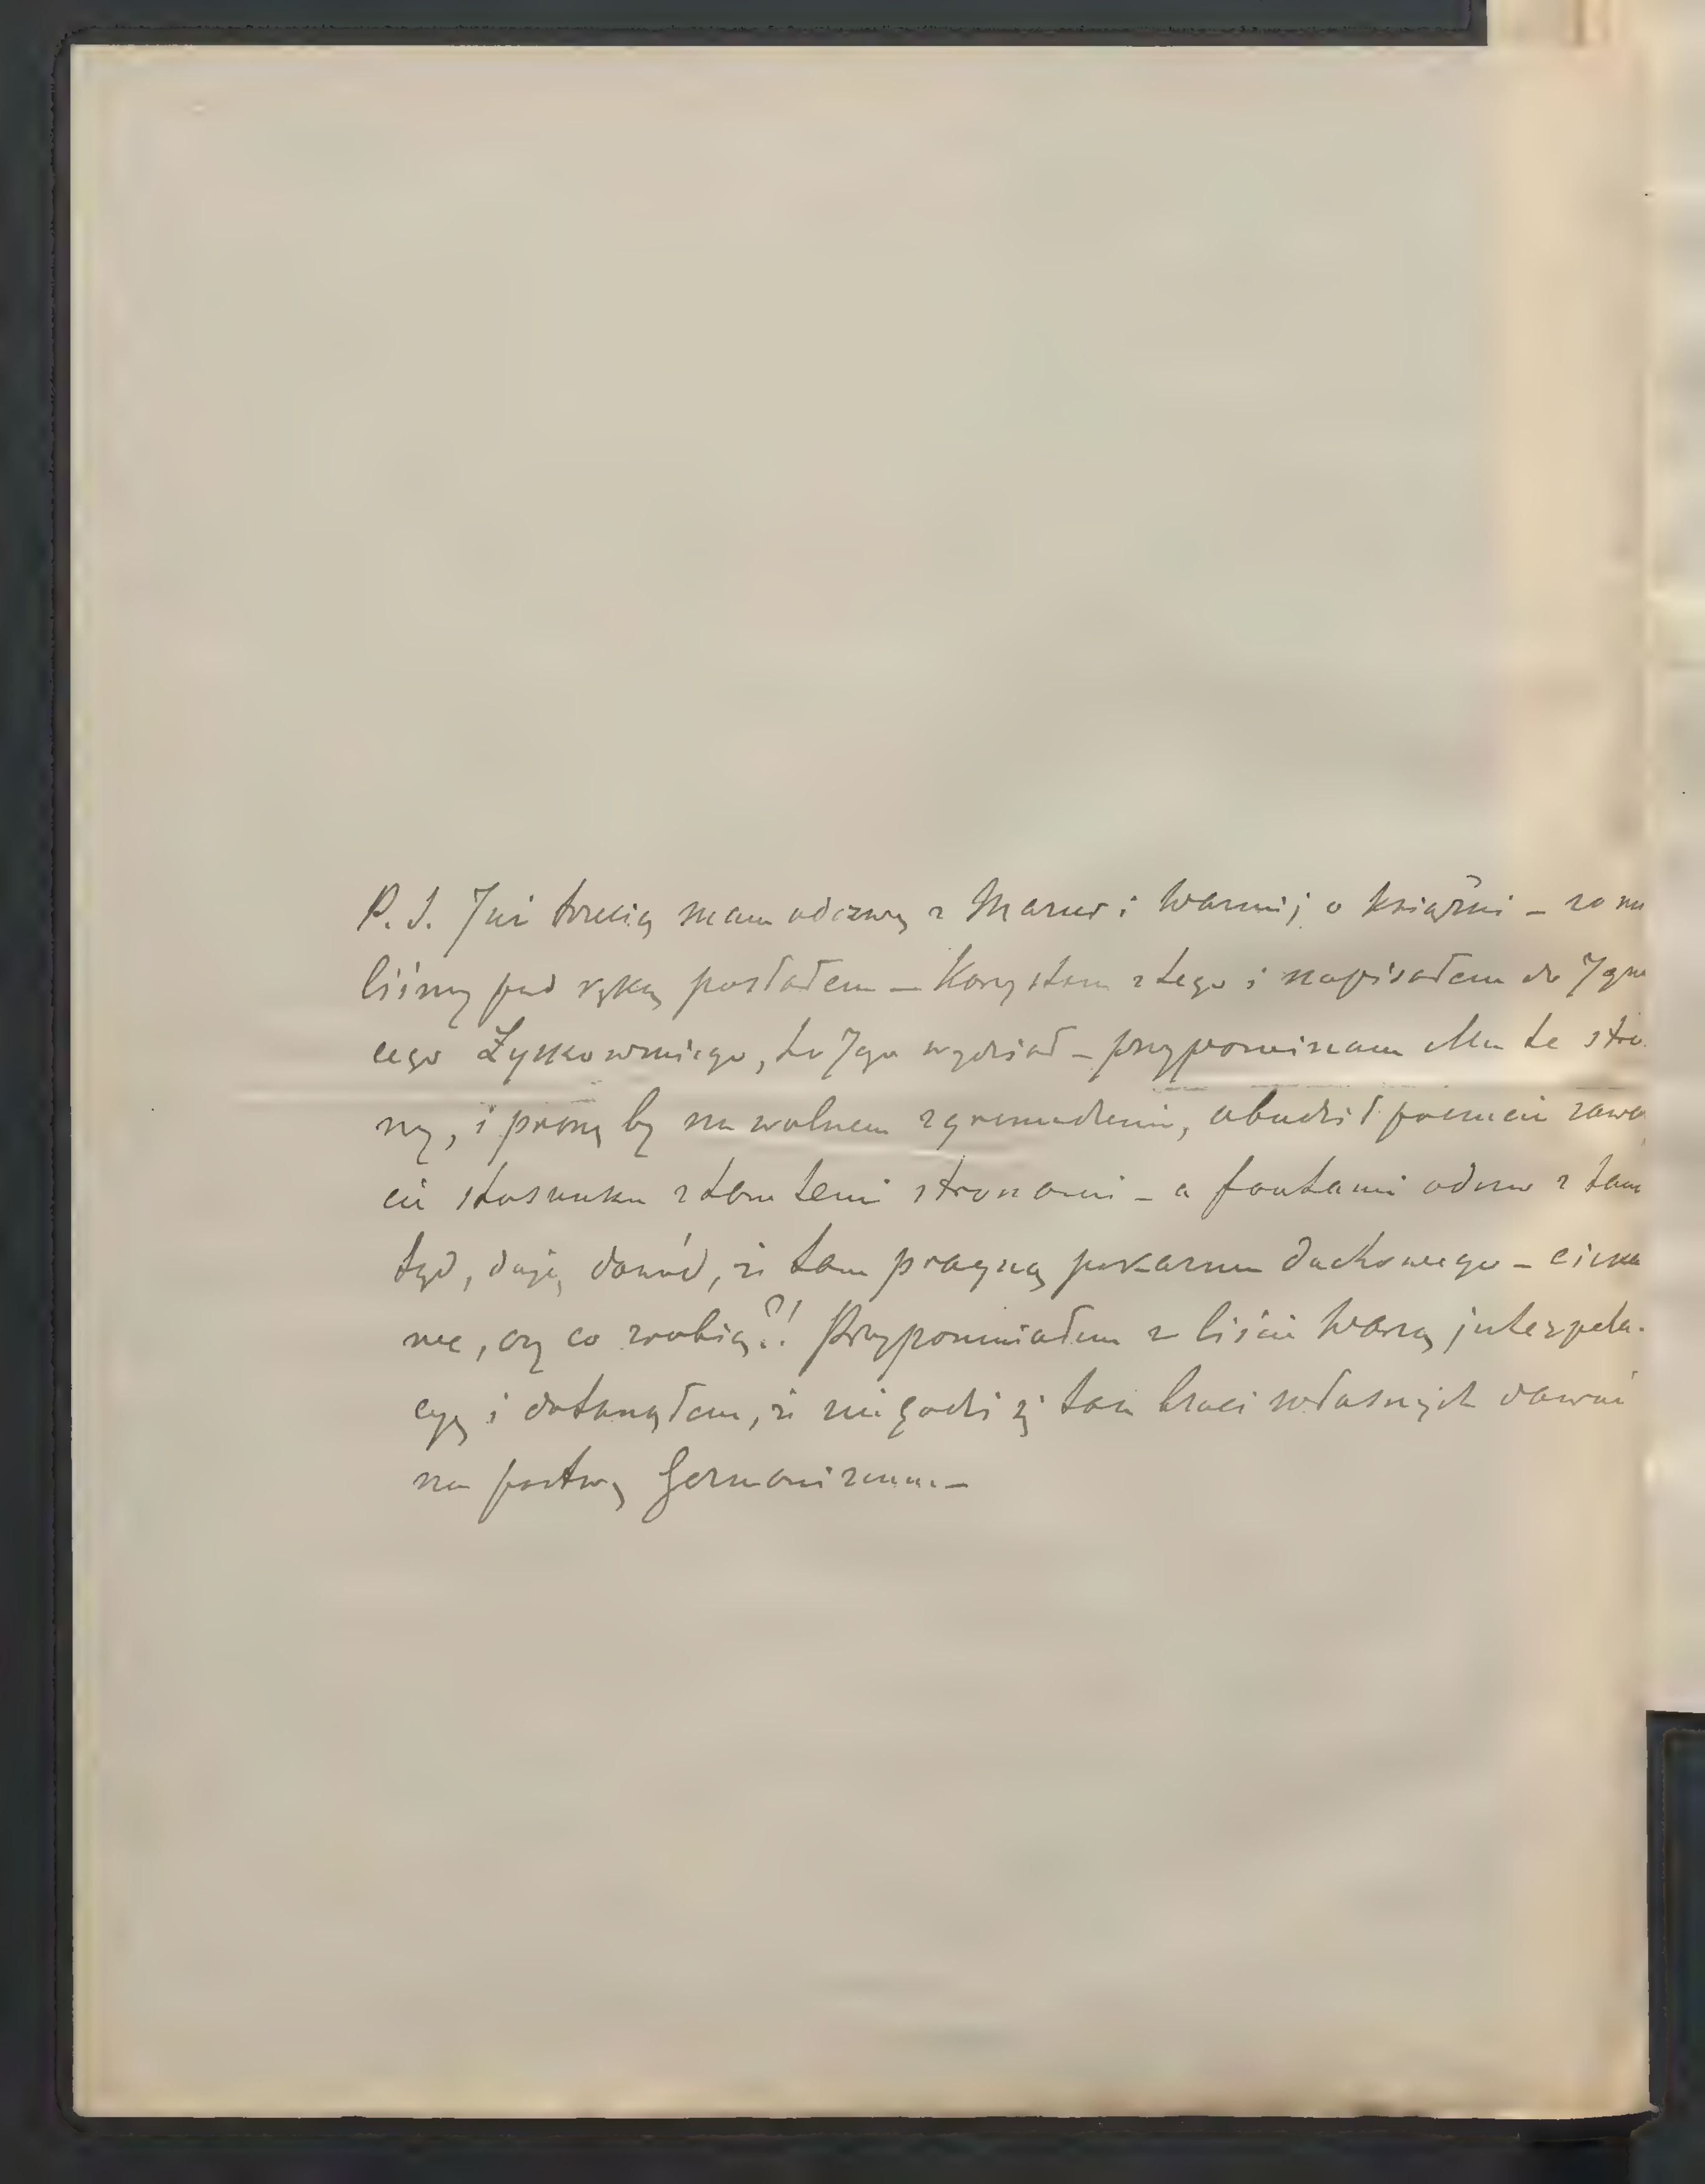 P. S. Już trzecią mam odezwę z Mazur i Warmij o książki – co mie
liśmy pod ręką posłałem – Korzystam z tego i napisałem do Igna
cego Łyskowskiego, bo Jego wydział – przypominam Mu te stro-
ny, i proszę by na walnem zgromadzeniu, obudził pamięć zawar
cia stosunku z tamtemi stronami – a faktami odezw z tam
tąd, daję dowód, że tam pragną pokarmu duchowego – cieka
we, czy co zrobią?! Przypomniałem w liście Waszą interpela-
cyę i dotknąłem, że nie godzi się tak braci własnych dawać
na pastwę Germanizmu. –